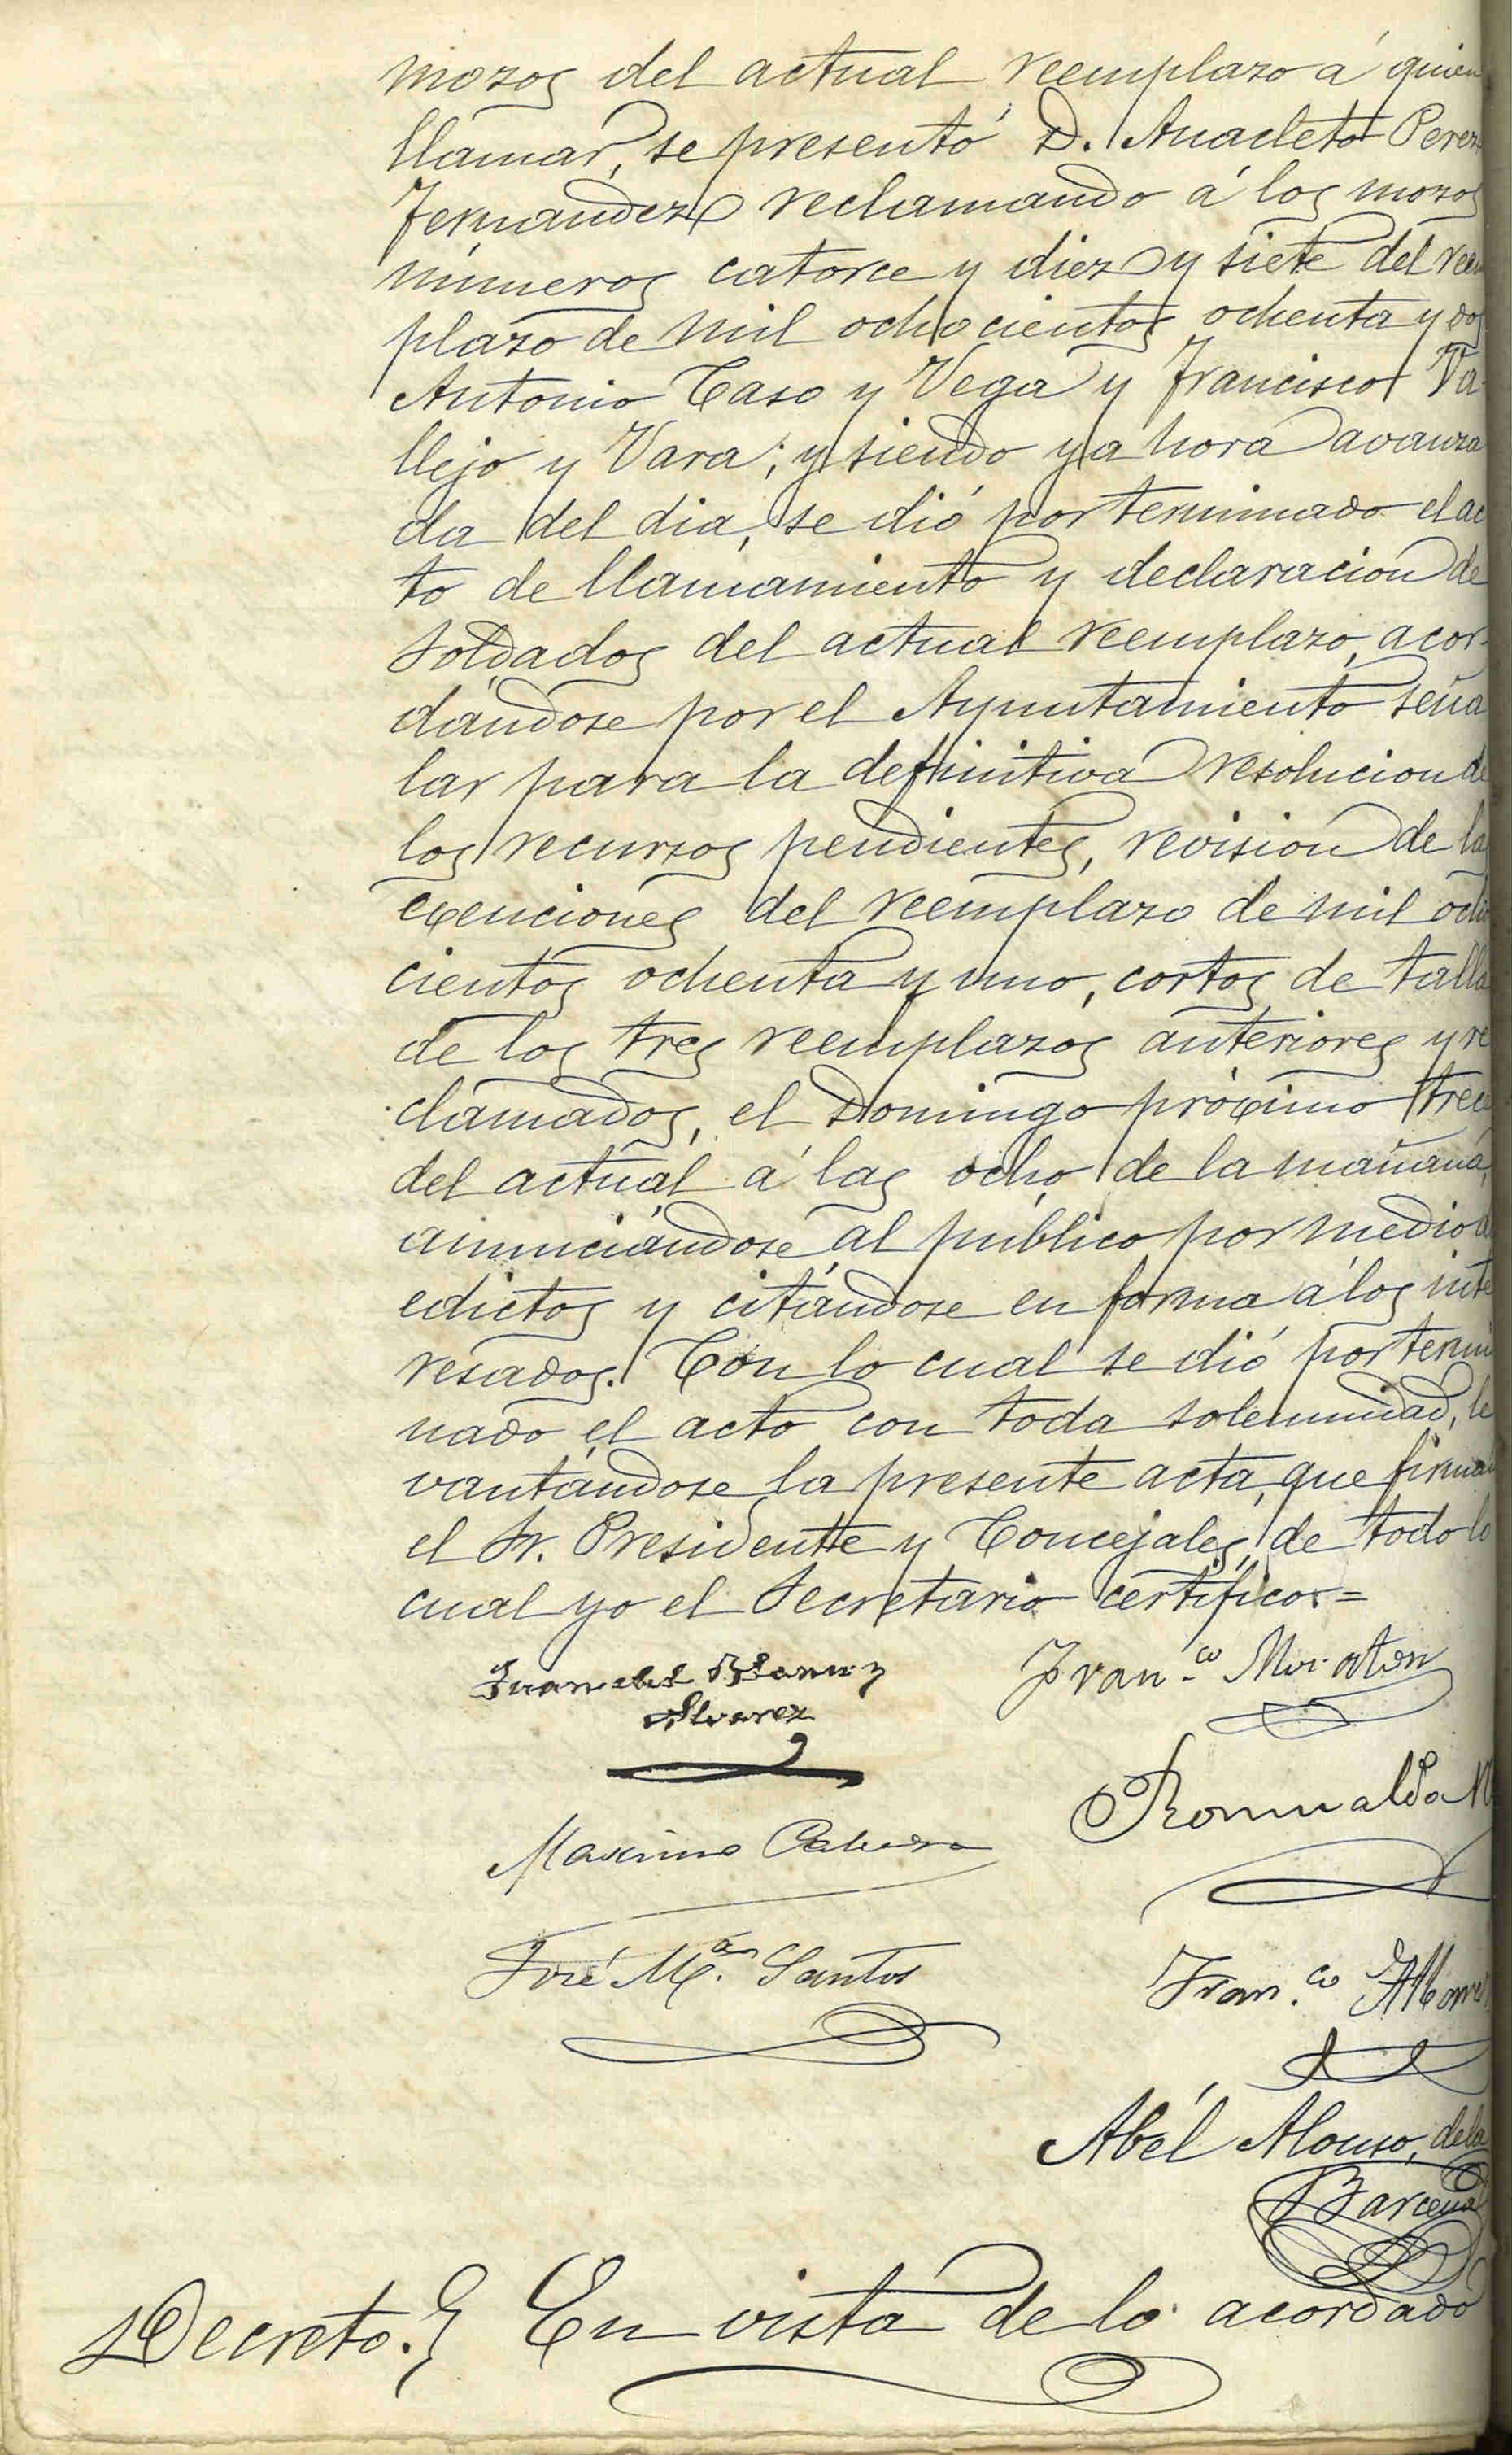 mozos del actual reemplazo á quien
llamar, se presentó D. Anacleto Perez
Fernandez reclamando á los mozos
números catorce y diez y siete del reem
plazo de mil ochocientos ochenta y dos
Antonio Caso y Vega y Francisco Va-
llejo y Vara; y siendo ya hora avanza
da del dia, se dió por terminado el ac
to de llamamiento y declaracion de
soldados del actual reemplazo, acor-
dándose por el Ayuntamiento seña
lar para la definitiva resolucion de
los recursos pendientes, revision de las
exenciones del reemplazo de mil ocho
cientos ochenta y uno, cortos de talla
de los tres reemplazos anteriores y re
clamados, el Domingo próximo trece
del actual á las ocho de la mañana,
anunciándose al público por medio de
edictos y citándose en forma á los inte
resados. Con lo cual se dió por termi
nado el acto con toda solemnidad, le
vantándose la presente acta, que firman
el Sr. Presidente y Concejales, de todo lo
cual yo el Secretario certifico.=
Alvarez
Fran.co Moraton
Romualdo
Maximo Cabeza
José M.a Santos
Fran.co
Abél Alonso, de la
Barcena
Decreto.} En vista de lo acordado